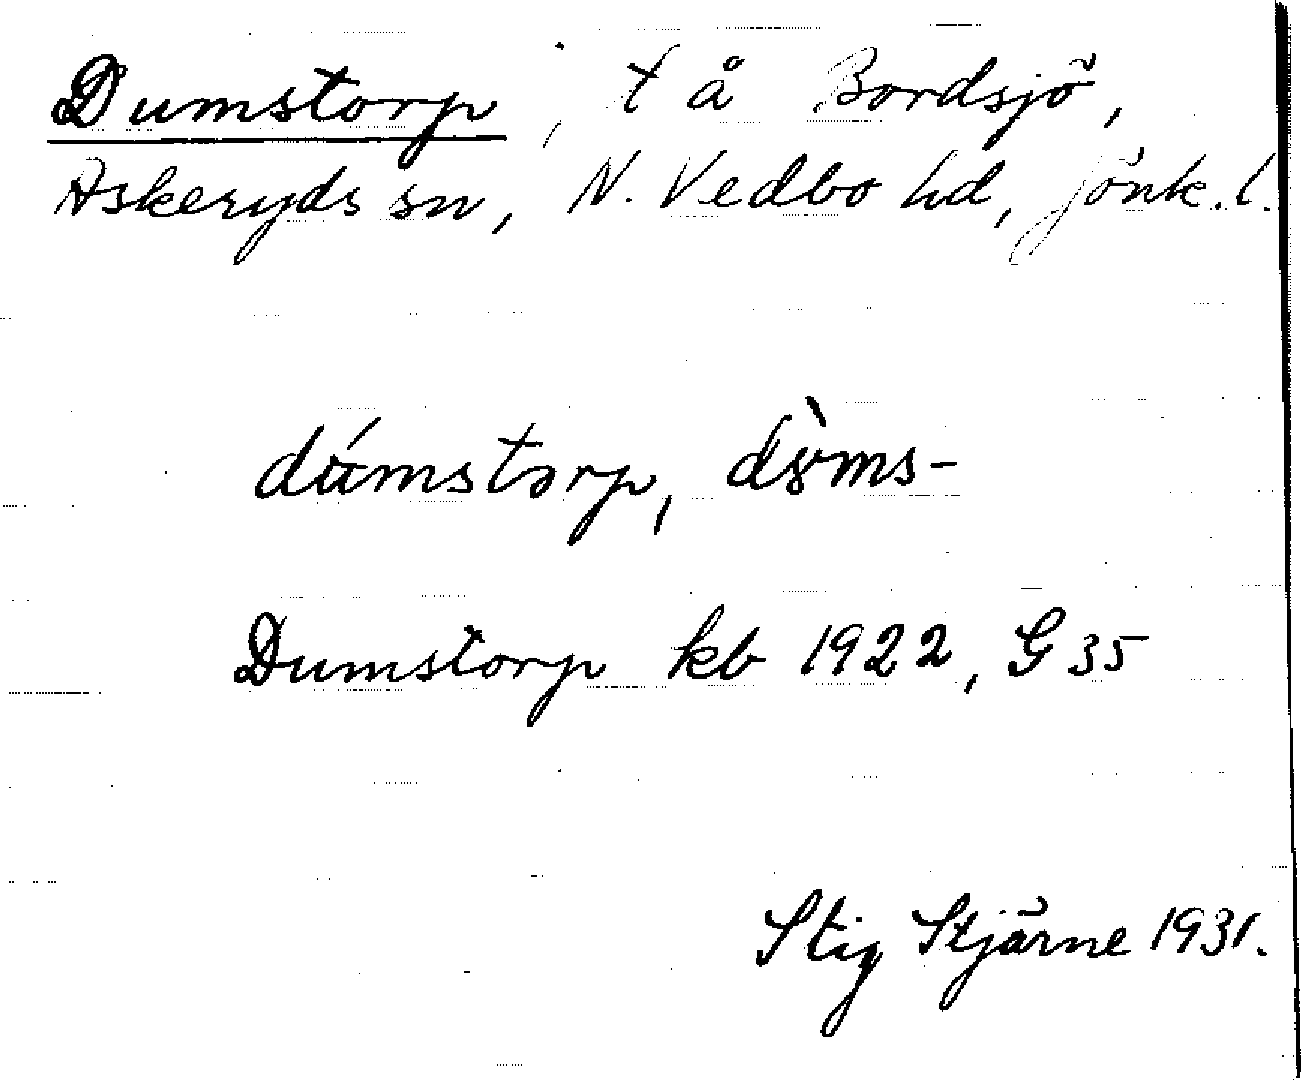 Dumstorp, t å Bordsjö,
Askeryds sn, N. Vedbo hd, Jönk. l.
dúmstərp, dɤ̀ms-
Dumstorp kb 1922, G 35
Stig Stjärne 1931.